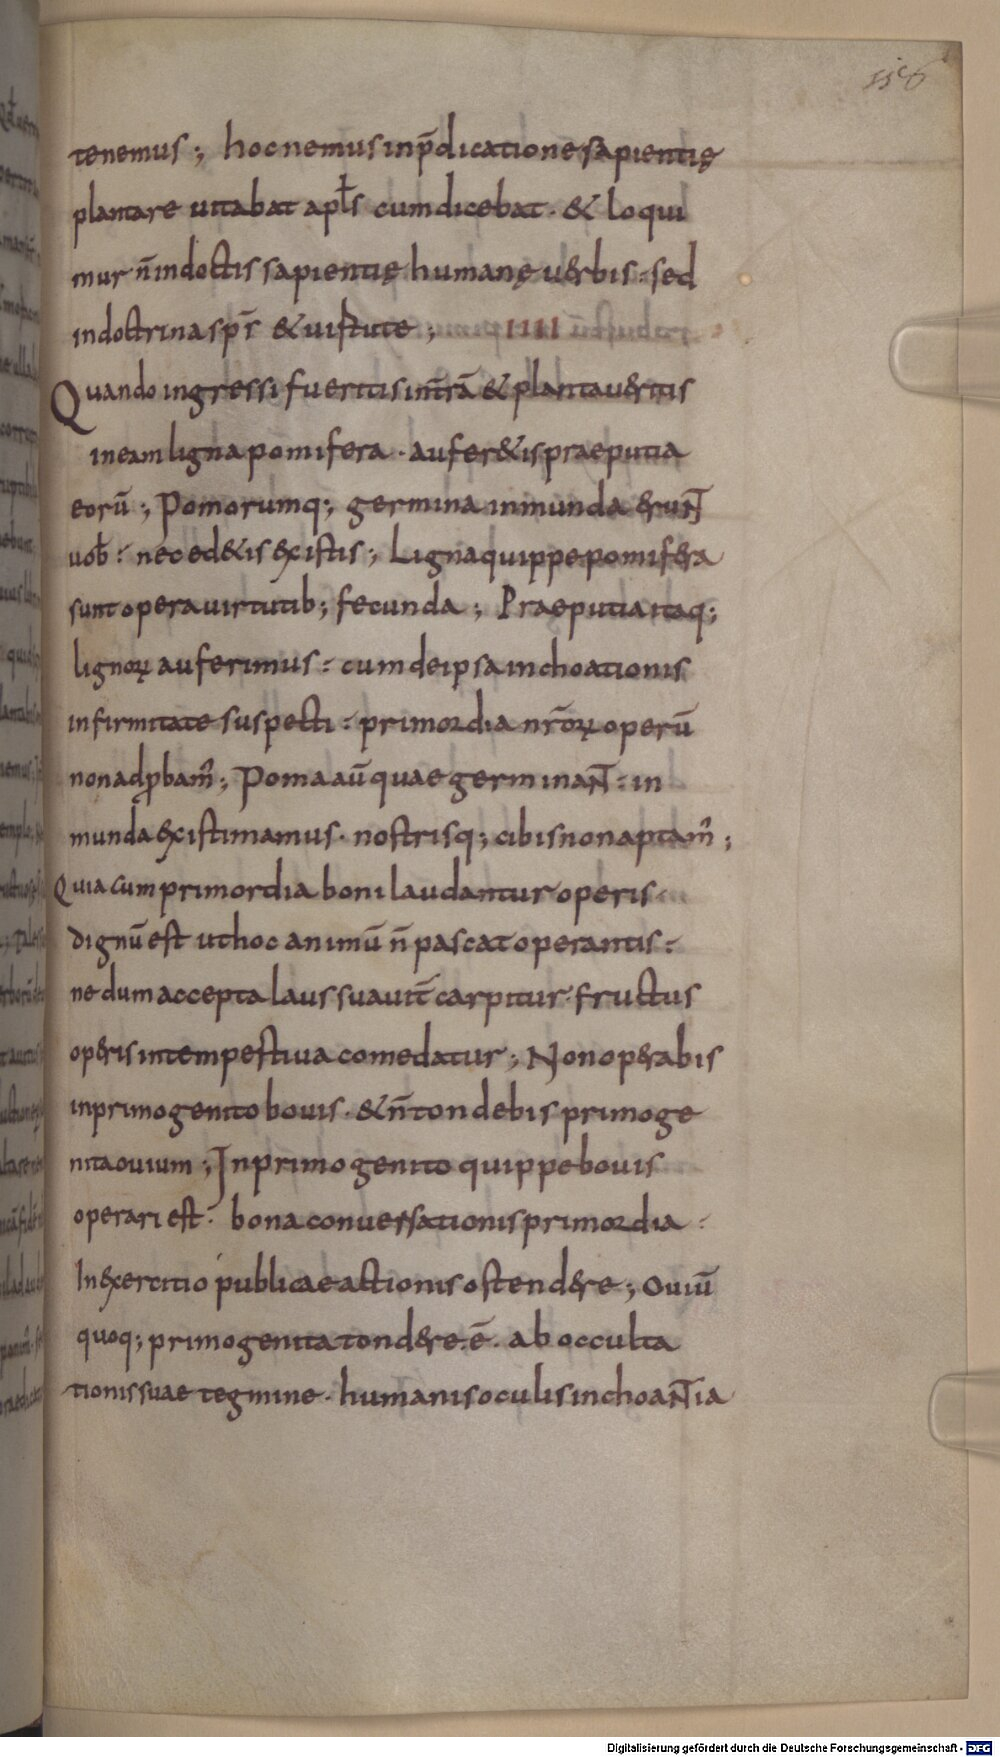 156
tenemus; hoc nemus in p̄dicatione sapientię
plantare uitabat apłs cum dicebat · & loqui
mur n̄ in doctis sapientię humanę uerbis : sed
in doctrina sp̄s & uirtute ; IIII
Quando ingressi fueritis in t̄rā & plantaueritis
in eam ligna pomifera · aufer&is praeputia
eorū ; Pomorumq; germina inmunda erunt
uob̄ : nec ed&is ex istis ; Ligna quippe pomifera
sunt opera uirtutib; fecunda ; Praeputia itaq;
lignorꝝ auferimus : cum de ipsa inchoationis
infirmitate suspecti : primordia nr̄orꝝ operū
non adꝓbam̄ ; Poma aū quae germinant : in
munda existimamus · nostrisq; cibis non aptam̄ ;
Quia cum primordia boni laudantur operis
dignū est ut hoc animū n̄ pascat operantis :
ne dum accepta laus suauit̄ carpitur · fructus
operis intempestiua comedatur ; Non operabis
in primogenito bouis · & n̄ tondebis primoge
nita ouium ; In primogenito quippe bouis
operari est : bona conuersationis primordia :
In exercitio publicae actionis ostendere ; Ouiū
quoq; primogenita tondere · ē · ab occulta
tionis suae tegmine · humanis oculis inchoantia
Digitalisierung gefördert durch die Deutsche Forschungsgemeinschaft - DFG